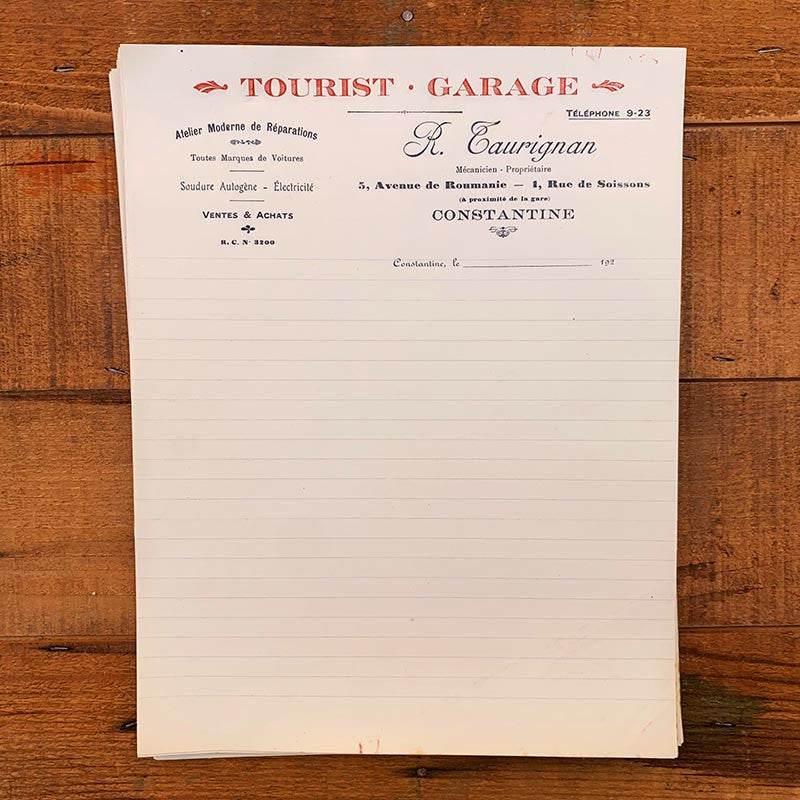 TOURIST · GARAGE
TÉLÉPHONE 9-23
Atelier Moderne de Réparations
Toutes Marques de Voitures
Soudure Autogène - Électricité
VENTES & ACHATS
R. C. N° 3200
R. Taurignan
Mécanicien - Propriétaire
5, Avenue de Roumanie — 1, Rue de Soissons
(à proximité de la gare)
CONSTANTINE
Constantine, le ______________ 192